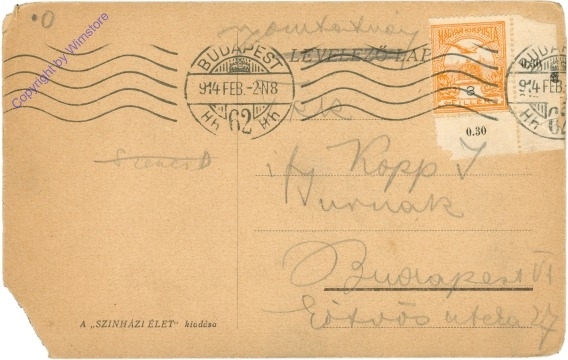 Copyright by Wimstore
nyomtatvány
LEVELEZŐ-LAP
MAGYAR KIR. POSTA
BUDAPEST
914 FEB.-2.N8
Hh 62 Hh
BUDAPEST
914 FEB
62 Hh
0.30
ifj Kopp J
urnak
Budapest VI
Eötvös utcza 27
A „SZINHÁZI ÉLET" kiadása